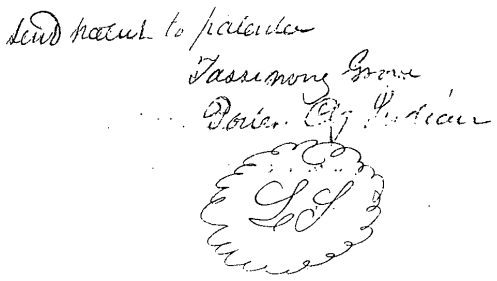 send patent to patentee
Tassinong Grove
Porter Cy Indian
LS